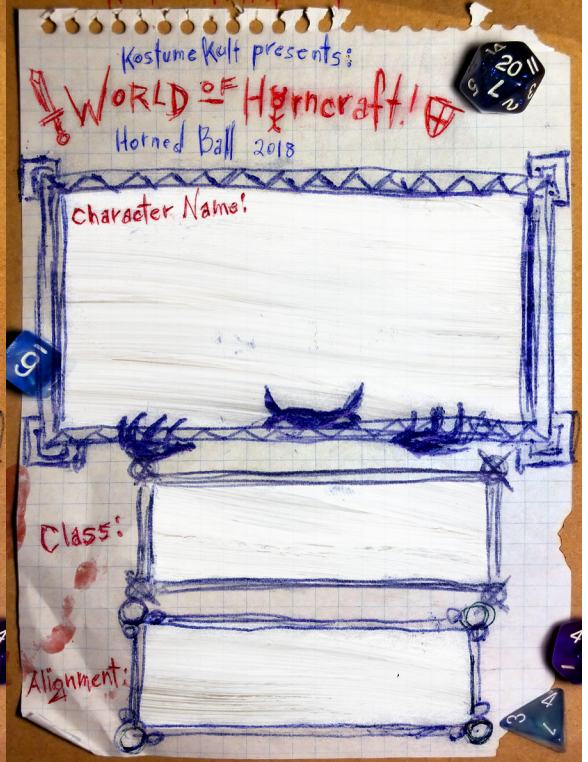 Kostume Kult presents:
WORLD OF Horncraft!
Horned Ball 2018
Character Name:
Class:
Alignment:
20
14
2
9
4
4
3
1